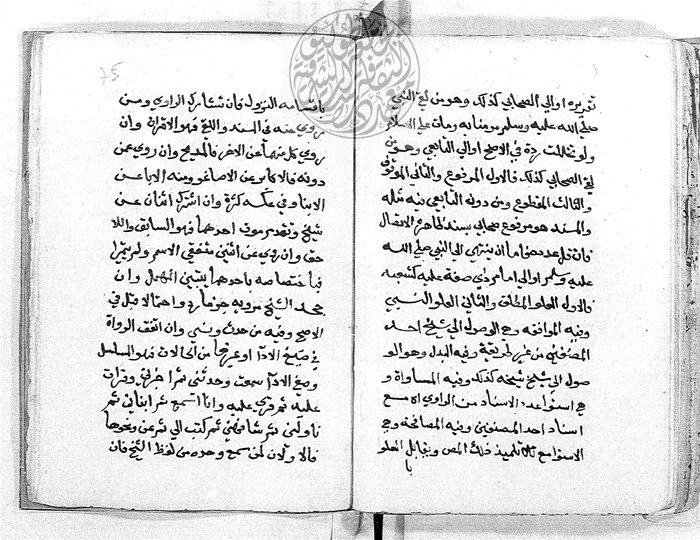 تقريره او الي الصحابي كذلك وهو من لقي النبي
صلي الله عليه وسلم مومنا به ومات علي الاسلام
ولو تخللت ردة في الاصح او الي التابعي وهو من
لقي الصحابي كذلك فالاول المرفوع والثاني الموقوف
والثالث المقطوع ومن دونه التابعي فيه مثله
والمسند هو مرفوع صحابي بسند ظاهره الاتصال
فان قل عدده فاما ان ينتهي الي النبي صلي الله
عليه وسلم او الي امام ذي صفة علية كشعبه
فالاول العلو المطلق والثاني العلو النسبي
وفيه الموافقه وهي الوصول الي شيخ احد
المصنفين من غير طريقة وفيه البدل وهو الو
صول الي شيخ شيخه كذلك وفيه المساواة و
هي استوا عدد الاسناد من الراوي اه مع
اسناد احد المصنفين وفيه المصافحة وهي
الاستوا مع تلميذ ذلك المص ويقابل العلو
با
75
باقسامه النزول فان تشارك الراوي ومن
روي عنه في السند واللقي فهو الاقران وان
روي كل منهما عن الاخر فالمدبج وان روي عمن
دونه فالاكابر عن الاصاغر ومنه الابا عن
الابنا وفي عكسه كثرة وان اشترك اثنان عن
شيخ وتقدم موت احدهما فهو السابق واللا
حق وان روي عن اثنين متفقي الاسم ولم يتميزا
فباختصاصه باحدهما يتبين المهمل وان
جحد الشيخ مرويه جزما رد واحتمالا قبل في
الاصح وفيه من حدث ونسي وان اتفق الرواة
في صيغ الادا او غيرها من الحالات فهو المسلسل
وصيغ الادا سمعت وحدثني ثم اخبرني وقرات
عليه ثم قري عليه وانا اسمع ثم انباني ثم
ناولني ثم شافهني ثم كتب الي ثم عن ونحوها
فالاولان لمن سمع وحده من لفظ الشيخ فان